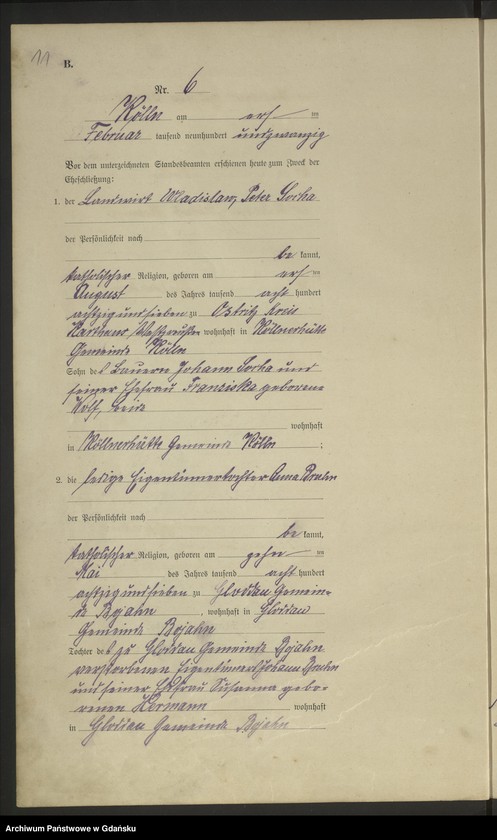 11
B.
Nr. 6
Kölln am ersten
Februar tausend neunhundert undzwanzig
Vor dem unterzeichneten Standesbeamten erschienen heute zum Zweck der
Eheschließung:
1. der Landwirt Wladislaus Peter Socha
der Persönlichkeit nach
be kannt,
katholischer Religion, geboren am ersten
August des Jahres tausend acht hundert
achtzigundsieben zu Ostritz Kreis
Karthaus, Westpreußen wohnhaft in Köllnerhütte
Gemeinde Kölln
Sohn des Bauern Johann Socha und
seiner Ehefrau Franziska geborene
Wolf, beide
wohnhaft
in Köllnerhütte Gemeinde Kölln ;
2. die ledige Eigentümertochter Anna
der Persönlichkeit nach
be kannt,
katholischer Religion, geboren am zehn ten
Mai des Jahres tausend acht hundert
achtzigundsieben zu Gloddau Gemein-
de Bojahn, wohnhaft in Gloddau
Gemeinde Bojahn
Tochter des zu Gloddau Gemeinde Bojahn
verstorbenen Eigentümers Johann
und seiner Ehefrau Susanna gebo-
renen Hermann wohnhaft
in Gloddau Gemeinde Bojahn
Archiwum Państwowe w Gdańsku